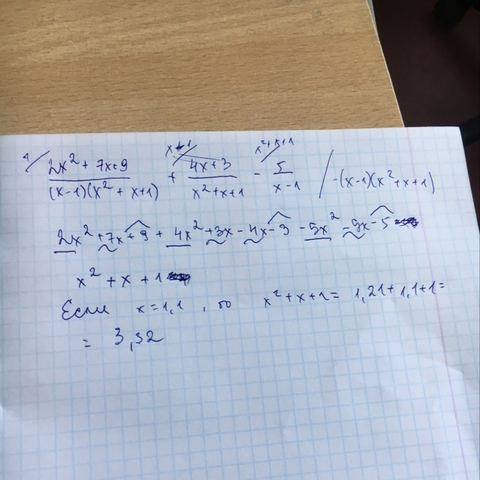 1/ (2x² + 7x + 9)/((x-1)(x² + x + 1)) + (4x+3)/(x²+x+1) - 5/(x-1) / ·(x-1)(x²+x+1)
2x² + 7x + 9 + 4x² + 3x - 4x - 3 - 5x² - 5x - 5
x² + x + 1
Если x = 1,1 , то x² + x + 1 = 1,21 + 1,1 + 1 =
= 3,32